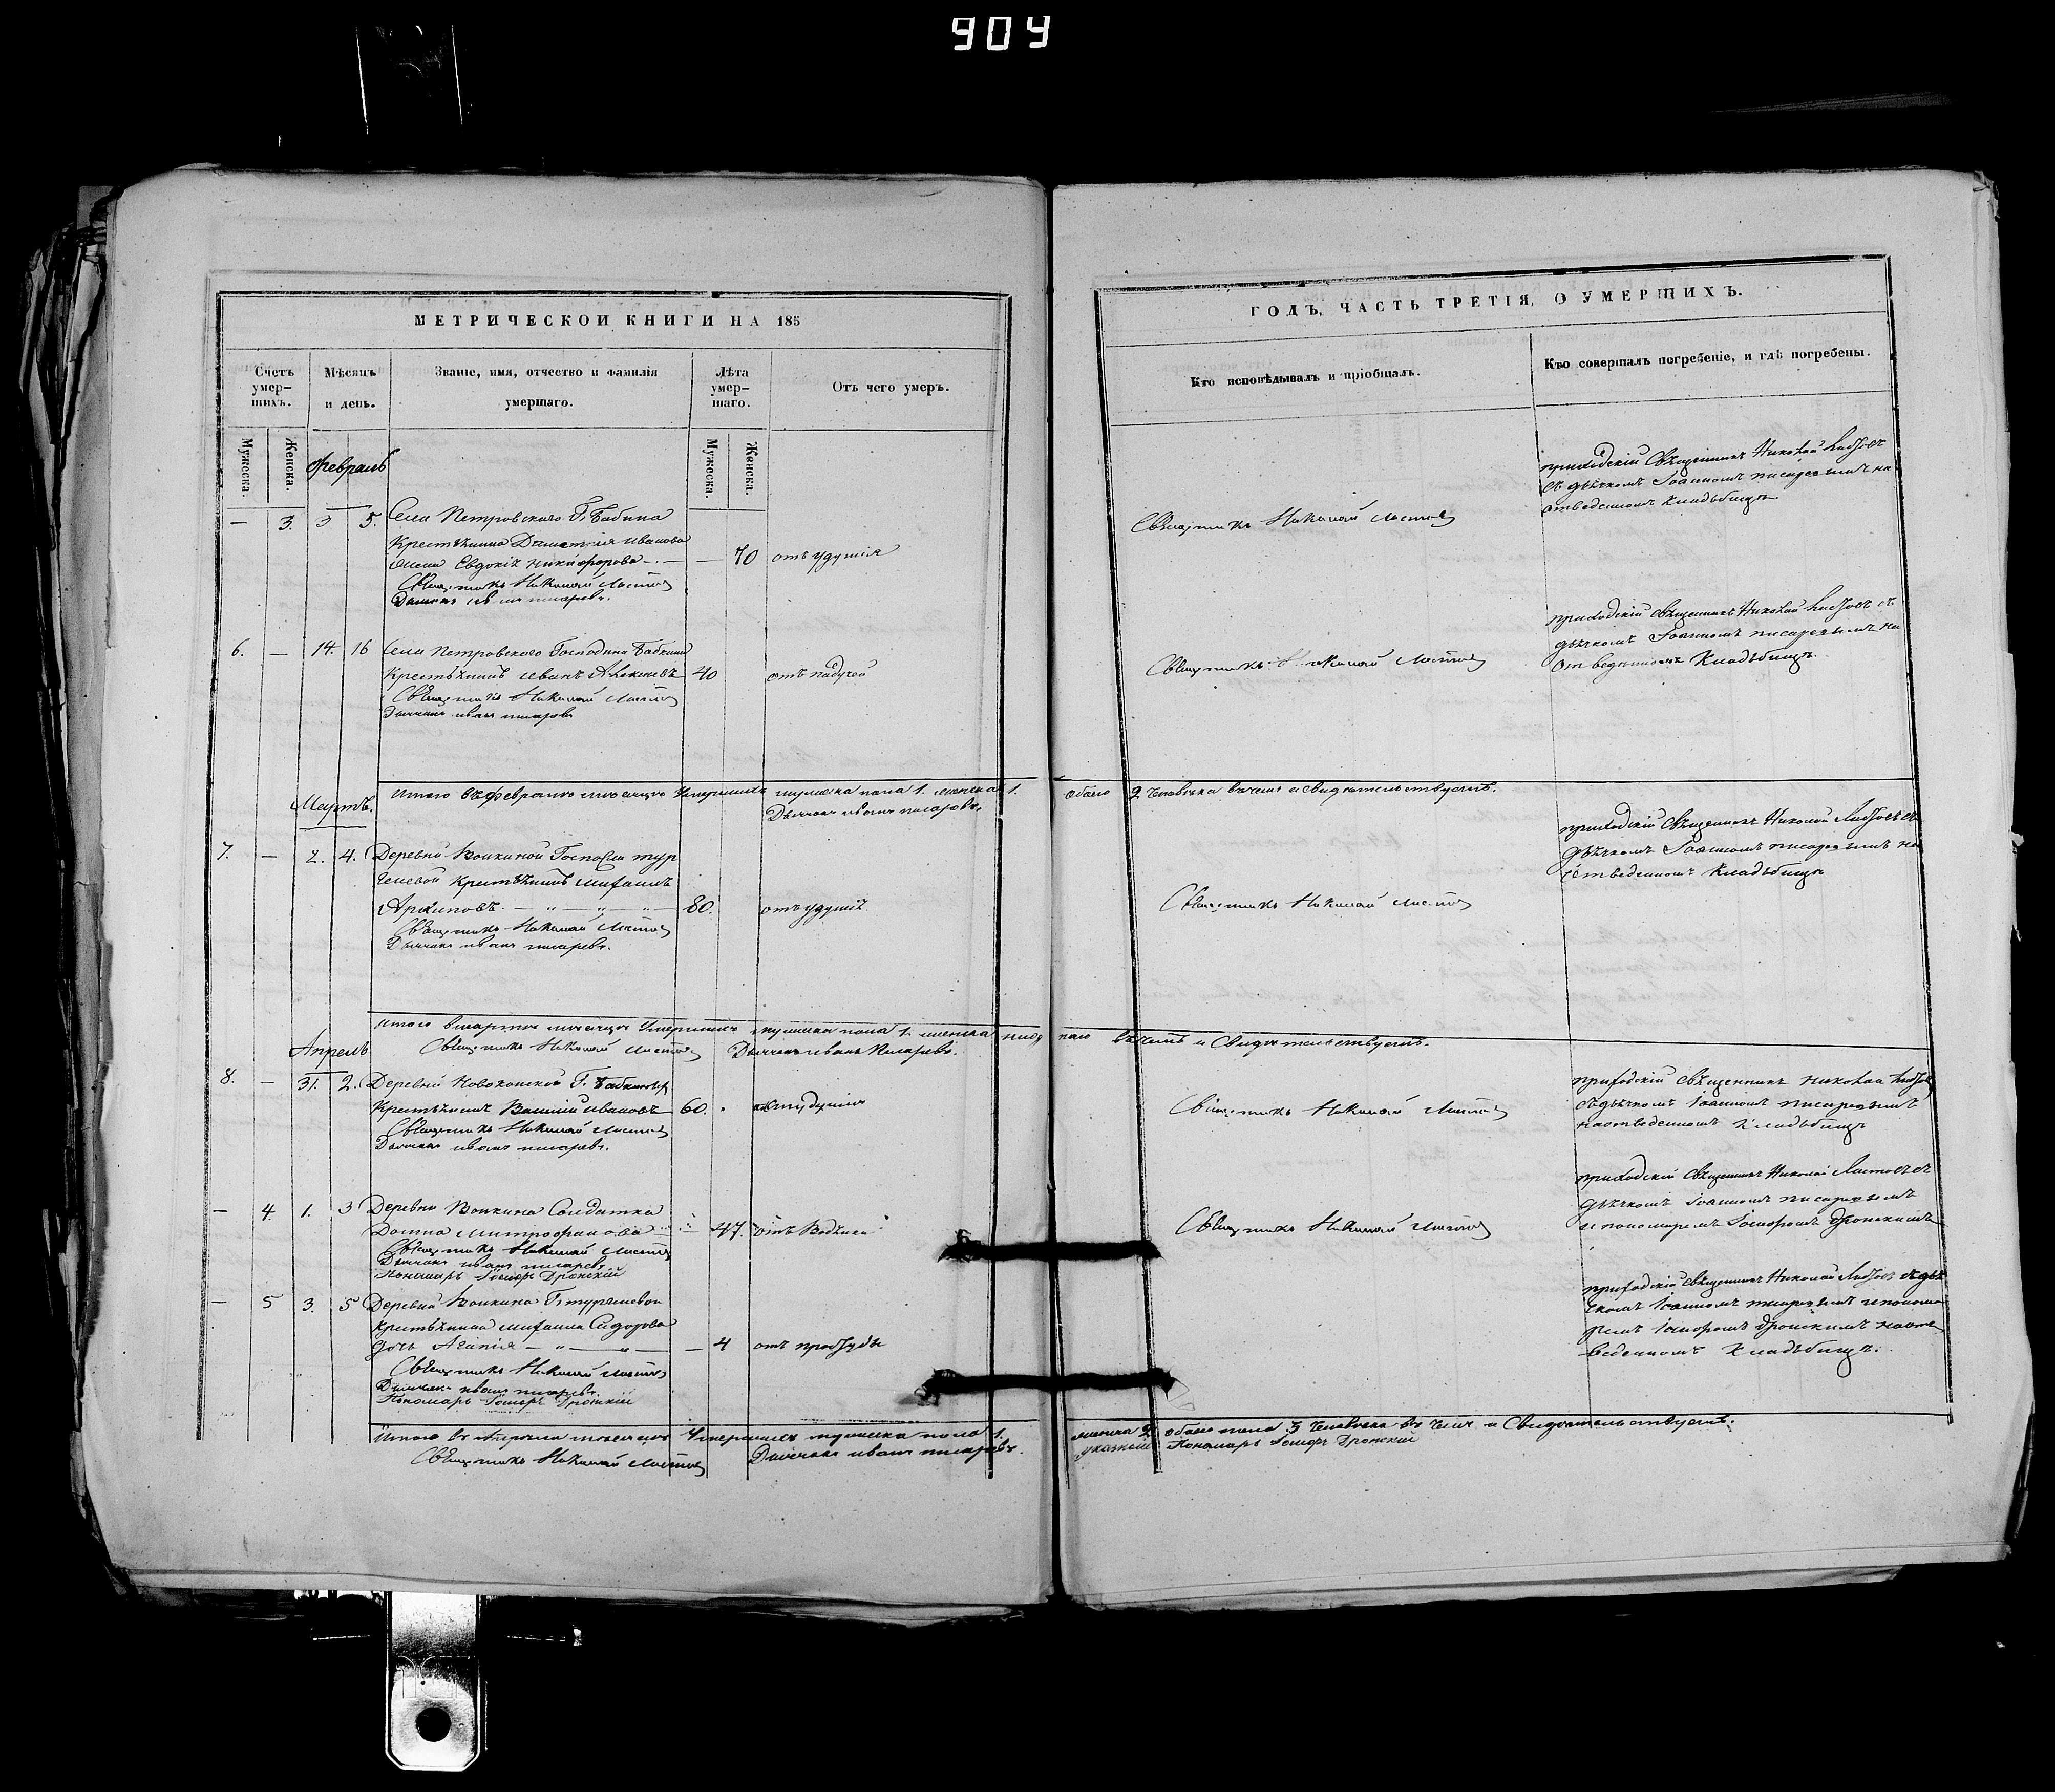 909
МЕТРИЧЕСКОЙ КНИГИ НА 185
Счетъ умер-
шихъ.
Мѣсяцъ
и день.
Званіе, имя, отчество и фамилія
умершаго.
Лѣта
умер-
шаго.
Отъ чего умеръ.
Мужеска.
Женска.
Мужеска.
Женска.
Февраль
— 3. 3 5. Села Петровскаго Г. Бабина
Крестьянина Димитрія Иванова
жена Евдокія Никифорова — 70 отъ удушія
Священникъ Николай
Дьячекъ Иванъ Писаревъ.
6. — 14. 16 Села Петровскаго Господина Бабкина
Крестьянинъ Иванъ Алексеевъ 40 отъ падучей
Священникъ Николай
Дьячекъ Иванъ Писаревъ
Итого въ Февралѣ месяце умершихъ мужеска пола 1. женска 1.
Дьячекъ Иванъ Писаревъ.
Мартъ.
7. — 2. 4. Деревни Воикиной Госпожи Тур
геневой Крестьянинъ Михаилъ
Архиповъ — „ — „ — „ — 80. отъ удушія
Священникъ Николай
Дьячекъ Иванъ Писаревъ.
Итого въ Марте месяце умершихъ мужеска пола 1. женска
Священникъ Николай Дьячекъ Иванъ Писаревъ.
Апрель
8. — 31. 2. Деревни Г.
Крестьянинъ Василій Ивановъ 60. отъ удушія
Священникъ Николай
Дьячекъ Иванъ Писаревъ.
— 4. 1. 3 Деревни Воикина Солдатка
Домна Митрофанова — 47. отъ Водяной
Священникъ Николай
Дьячекъ Иванъ Писаревъ
Пономарь Іосифъ Дронскій
— 5 3. 5 Деревни Воикина Г. Тургеневой
Крестьянина Михаила Сидорова
дочь Агапія — „ — „ — 4 отъ простуды
Священникъ Николай
Дьячекъ Иванъ Писаревъ.
Пономарь Іосифъ Дронскій
Итого въ Апреле месяце умершихъ мужеска пола 1.
Священникъ Николай Дьячекъ Иванъ Писаревъ.
ГОДЪ, ЧАСТЬ ТРЕТІЯ, О УМЕРШИХЪ.
Кто исповѣдывалъ и пріобщалъ.
Кто совершалъ погребеніе, и гдѣ погребены.
приходскій Священникъ Николай
съ дьячкомъ Іоанномъ Писаревымъ на
отведенномъ Кладбищѣ
Священникъ Николай
приходскій священникъ Николай съ
дьячкомъ Іоанномъ Писаревымъ на
отведенномъ Кладбищѣ.
Священникъ Николай
обоего 2 человѣка въ чемъ и свидѣтельствуемъ.
приходскій священникъ Николай съ
дьячкомъ Іоанномъ Писаревымъ на
отведенномъ Кладбищѣ
Священникъ Николай
въ чемъ и Свидѣтельствуемъ.
приходскій священникъ Николай
съ дьячкомъ Іоанномъ Писаревымъ
на отведенномъ Кладбищѣ
Священникъ Николай
приходскій священникъ Николай съ
дьячкомъ Іоанномъ Писаревымъ
и пономаремъ Іосифомъ Дронскимъ
Священникъ Николай
приходскій священникъ Николай съ дья
чкомъ Іоанномъ Писаревымъ и понома
ремъ Іосифомъ Дронскимъ на от
веденномъ Кладбищѣ.
женска 2 обоего пола 3 человека въ чемъ и Свидѣтельствуемъ.
Пономарь Іосифъ Дронскій